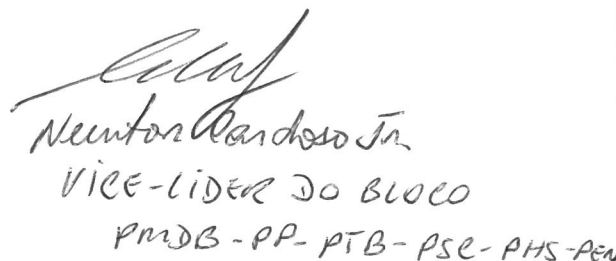 Newton Cardoso Jr
VICE-LÍDER DO BLOCO
PMDB-PP-PTB-PSC-PHS-PEN